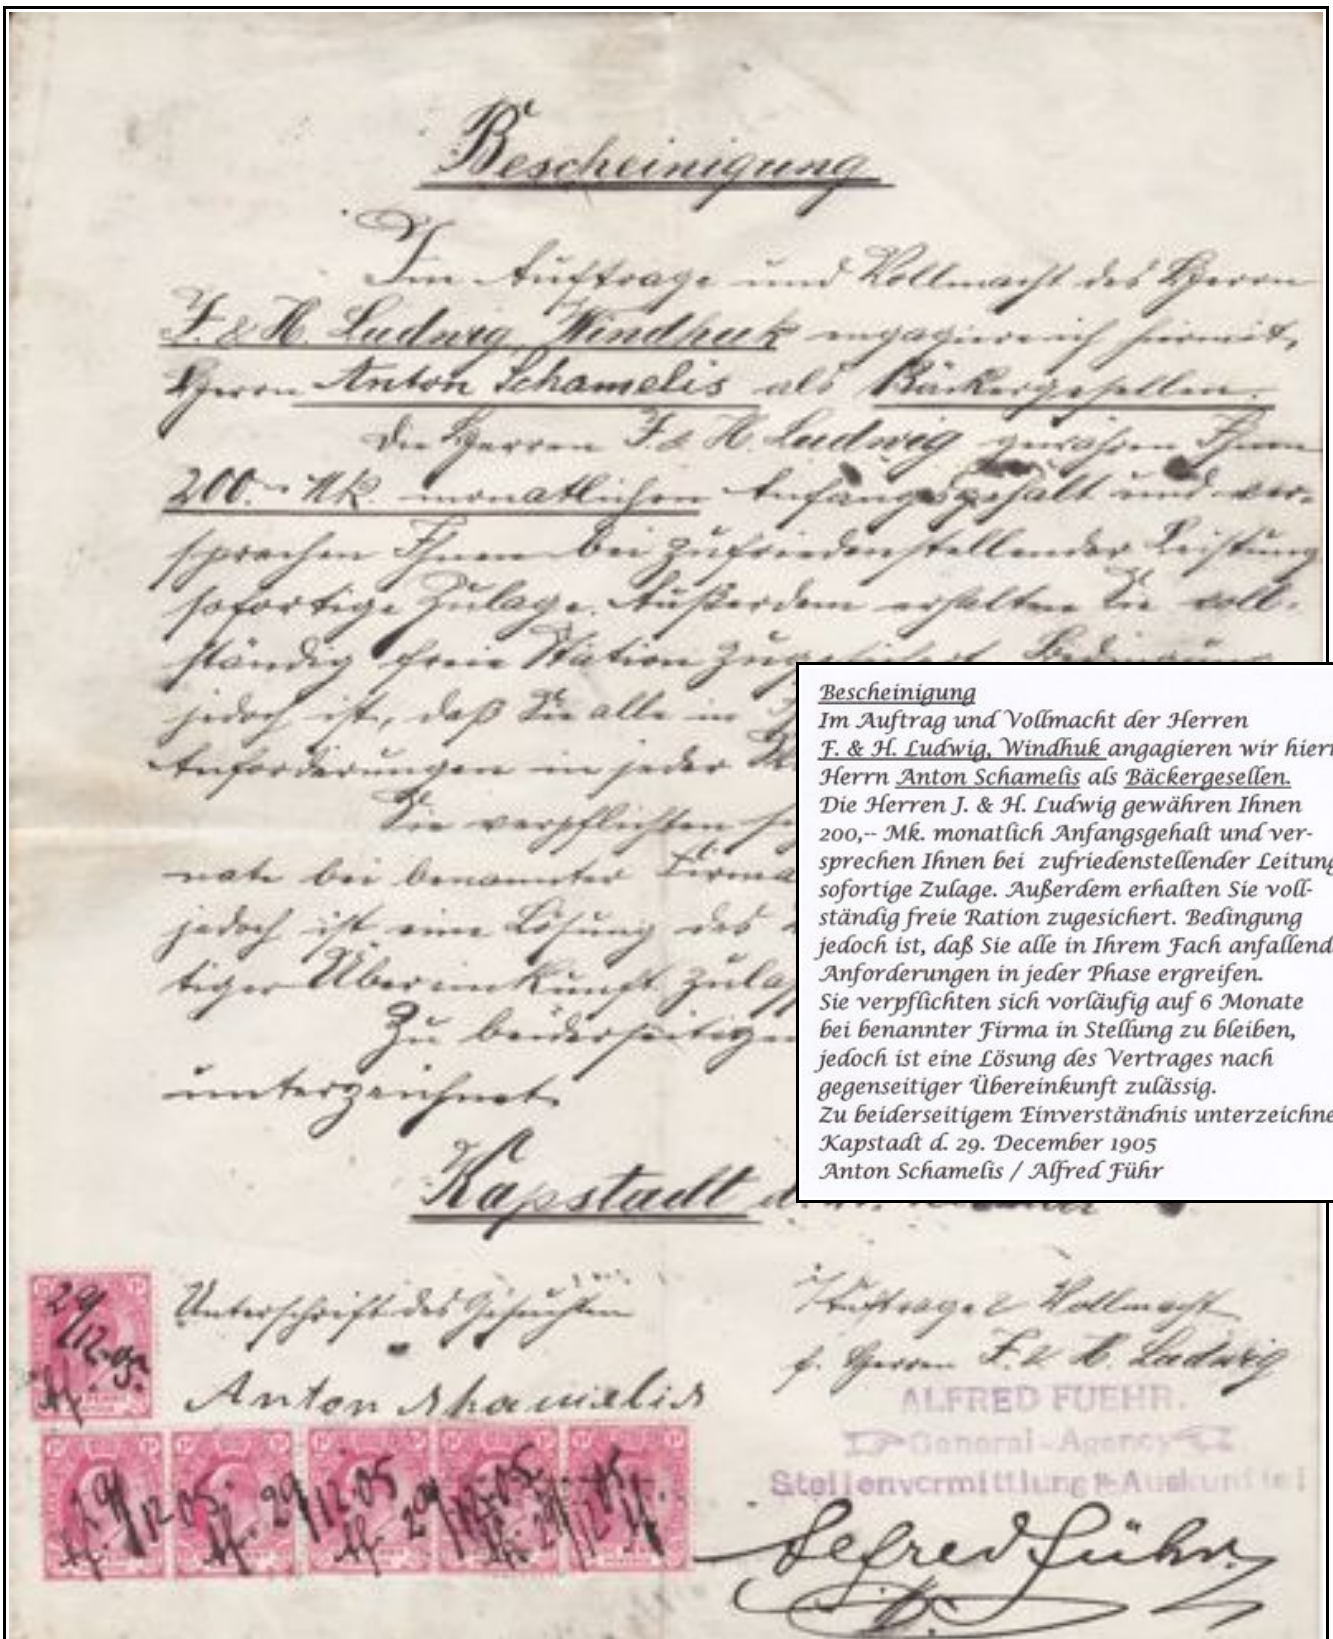 Bescheinigung
Im Auftrage und Vollmacht des Herrn
F. & H. Ludwig, Windhuk engagiere ich hiermit,
Herrn Anton Schamelis als Bäckergesellen.
Die Herren F. & H. Ludwig gewähren Ihnen
200.- Mk. monatlichen Anfangsgehalt und ver-
sprechen Ihnen bei zufriedenstellender Leistung
sofortige Zulage. Außerdem erhalten Sie voll-
ständig freie Station zugesichert. Bedingung
jedoch ist, daß Sie alle in
Anforderungen in jeder
Sie verpflichten
nate bei benannter Firma
jedoch ist eine Lösung des
tiger Übereinkunft
Zu beiderseitigem
unterzeichnet.
Kapstadt d.
Bescheinigung
Im Auftrag und Vollmacht der Herren
F. & H. Ludwig, Windhuk angagieren wir
Herrn Anton Schamelis als Bäckergesellen.
Die Herren J. & H. Ludwig gewähren Ihnen
200,-- Mk. monatlich Anfangsgehalt und ver-
sprechen Ihnen bei zufriedenstellender Leitung
sofortige Zulage. Außerdem erhalten Sie voll-
ständig freie Ration zugesichert. Bedingung
jedoch ist, daß Sie alle in Ihrem Fach anfallend
Anforderungen in jeder Phase ergreifen.
Sie verpflichten sich vorläufig auf 6 Monate
bei benannter Firma in Stellung zu bleiben,
jedoch ist eine Lösung des Vertrages nach
gegenseitiger Übereinkunft zulässig.
Zu beiderseitigem Einverständnis unterzeichne
Kapstadt d. 29. December 1905
Anton Schamelis / Alfred Führ
29/12.05
Unterschrift des Gesuchten
Anton Shamelis
Auftrage & Vollmacht
f. Herren F. & H. Ludwig
ALFRED FUEHR.
General-Agency
Stellenvermittlung & Auskunftei
29/12 05 29/12 05 29/12 05 29/12 05
Alfred Führ